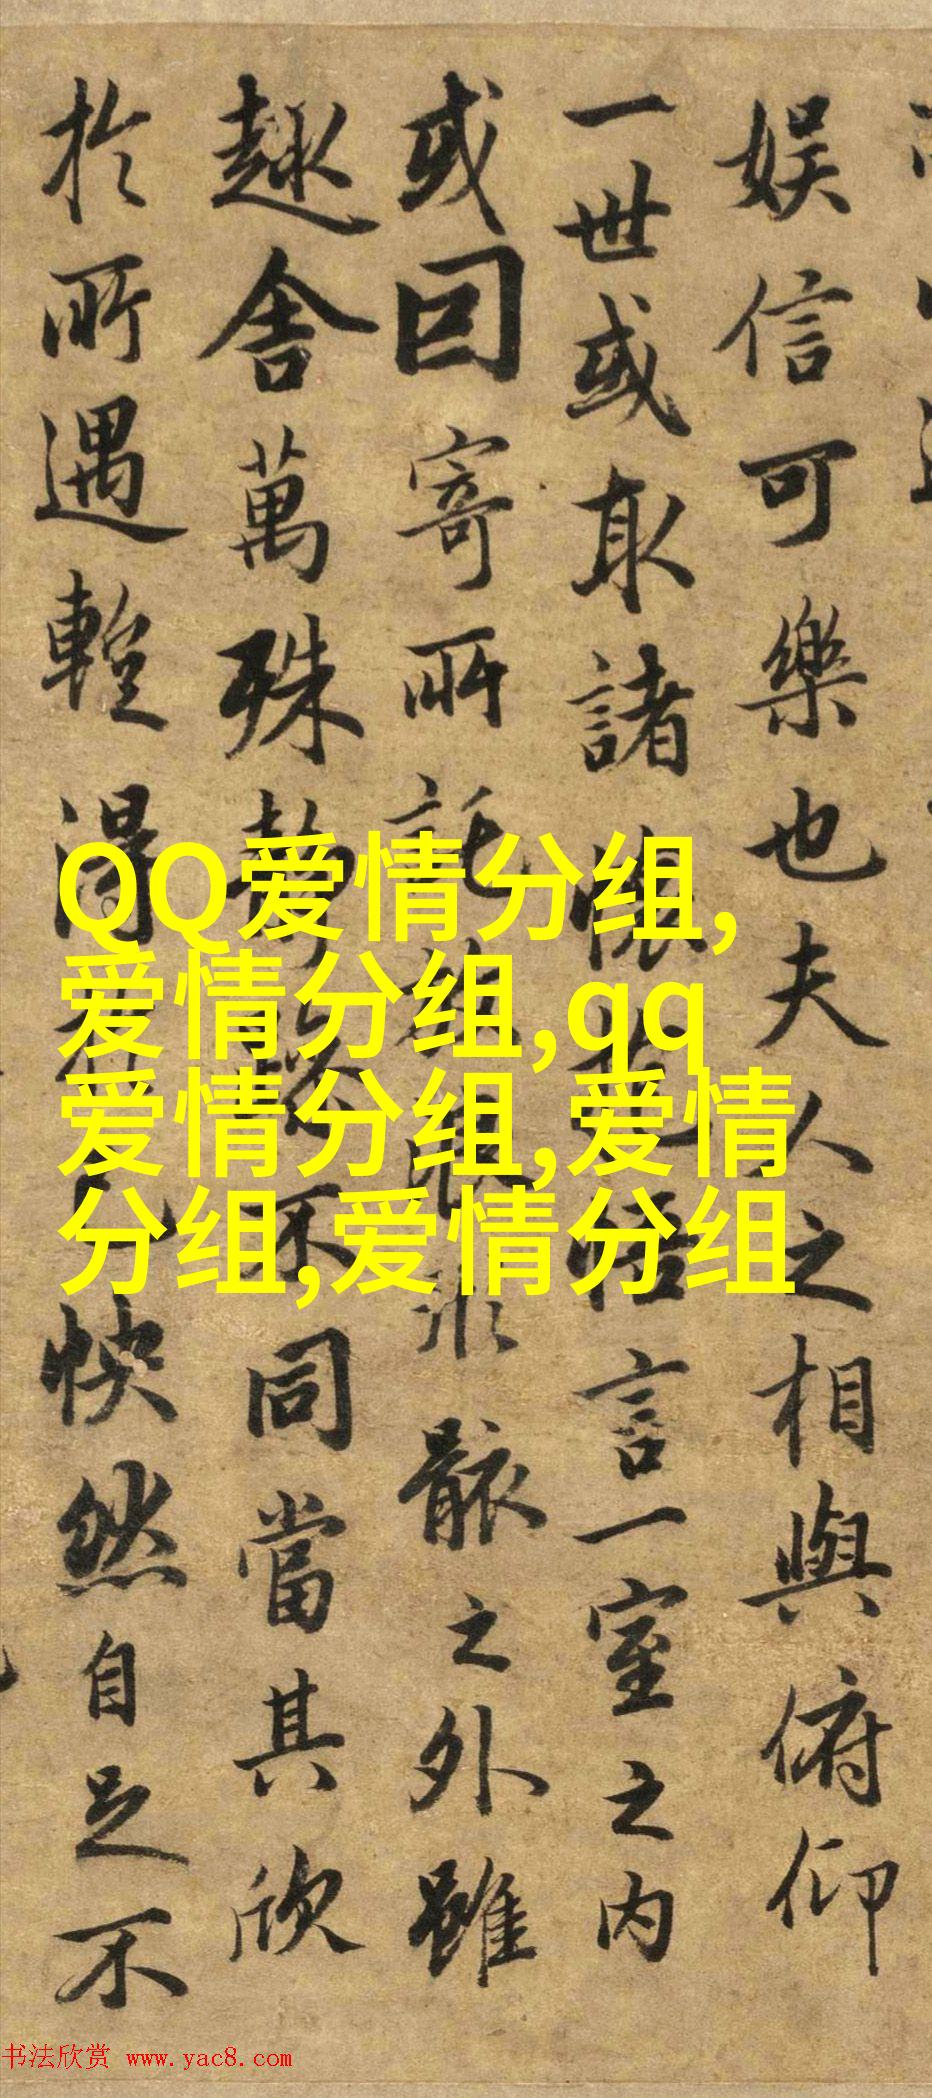 娱信可樂也夫人之相與俯仰
一世或取諸懷抱悟言一室之内
或因寄所託放浪形骸之外雖
趣舍萬殊静躁不同當其欣
於所遇輙得快然自足不
QQ爱情分组,
爱情分组,qq
爱情分组,爱情
分组,爱情分组
书法欣赏 www.yac8.com